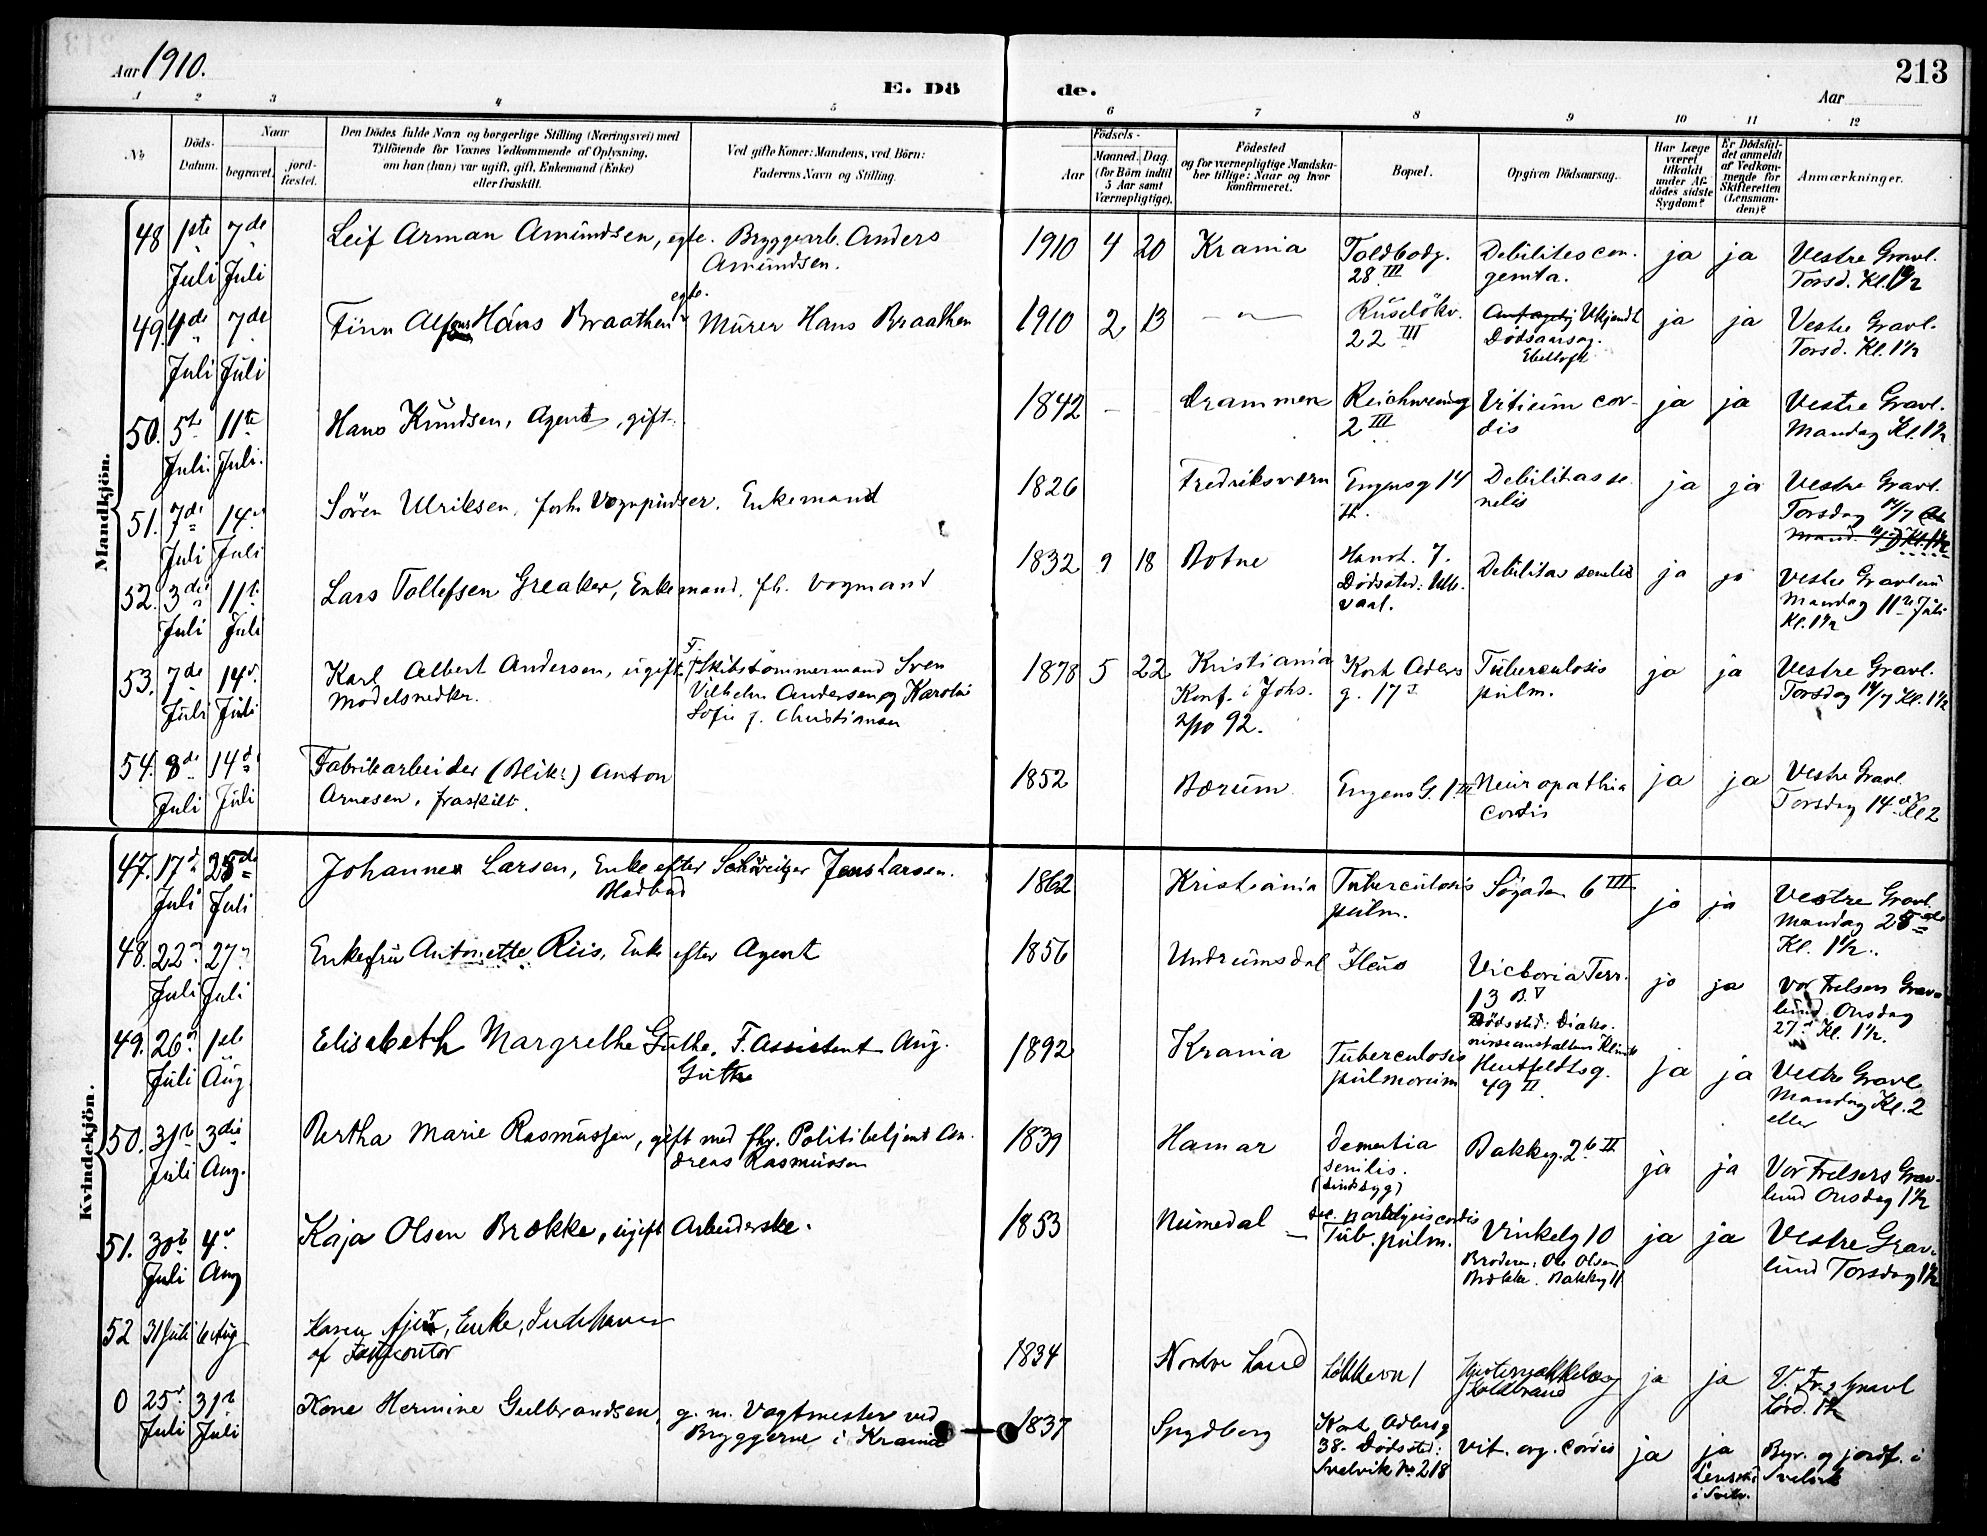 Aar 1910.
E. Dö de.
213
Aar
1 2 3 4 5 6 7 8 9 10 11 12
No
Döds-Datum.
Naar
begravet.
jord-fæstet.
Den Dödes fulde Navn og borgerlige Stilling (Næringsvei) med
Tilföiende for Voxnes Vedkommende af Oplysning,
om han (hun) var ugift, gift, Enkemand (Enke)
eller fraskilt.
Ved gifte Koner: Mandens, ved Börn:
Faderens Navn og Stilling.
Födsels-
Aar
Maaned. Dag
(for Börn indtil
5 Aar samt
Værnepligtige).
Födested
og for værnepligtige Mandska-
ber tillige: Naar og hvor
konfirmeret.
Bopæl.
Opgiven Dödsaarsag.
Har Læge
været
tilkaldt
under Af-
dödes sidste
Sygdom?
Er Dödsfal-
det anmeldt
af Vedkom-
mende for
Skifteretten
(Lensman-
den)?
Anmærkninger.
Mandkjön.
48 1ste Juli 7de Juli Leif Arman Amundsen, egte. Bryggearb. Anders
Amundsen.
1910 4 20 Krania Toldbodg.
28 III
Debilitas con-
genita.
ja ja Vestre Gravl.
Torsd. Kl. 1½
49. 4de Juli 7de Juli Finn Alfons Hans Braathen egte. Murer Hans Braathen
1910 2 13 — " — Ruselökv.
22 III
Ukjendt
Dödsaarsag.
ja ja Vestre Gravl.
Torsd. Kl. 1½
50. 5te Juli. 11te Juli. Hans Knudsen, Agent, gift.
1842 – Drammen Reichweinsg
2 III
Vitium cor-
dis
ja ja Vestre Gravl.
Mandag Kl. 1½
51. 7de Juli 14de Juli Sören Ulriksen, forh. Vognpudser. Enkemand
1826 Fredriksværn Engensg 14
II.
Debilitas se-
nilis
ja ja Vestre Gravl.
Torsdag 14/7
52. 3die Juli 11te Juli Lars Tollefsen Greaker, Enkemand, fh. Vogmand
1832 9 18 Botne Hanst. 7.
Dödssted: Ulle-
vaal.
Debilitas senilis
ja ja Vestre Gravlund
Mandag 11te Juli
Kl. 1½
53. 7de Juli 14de Juli Karl Albert Andersen, ugift F. Skibstömmermand Sven
Modelsnedker. Vilhelm Andersen og Karoline
Sofie f. Christiansen
1878 5 22 Kristiania
Konf. i Johs.
2/10 92.
Kort Adelers
g. 17 I
Tuberculosis
pulm.
ja ja Vestre Gravl.
Torsdag 14/7 Kl. 1½
54. 8de Juli 14de Juli Fabrikarbeider (Blik:) Anton
Arnesen, fraskilt.
1852 Bærum Engens G. 1 III Neuropathia
cordis
ja ja Vestre Gravl.
Torsdag 14de Kl 2
Kvindekjön.
47. 17de Juli 25de Juli Johanne Larsen, Enke efter Jens Larsen.
1862 Kristiania Tuberculosis
pulm.
Sögaden 6 III
ja ja Vestre Gravl.
Mandag 25de
Kl. 1½.
48. 22de Juli 27de Juli Enkefru Antonette Riis, Enke efter Agent
1856 Undrumsdal Ileus Victoria Terr.
13 B. V
Dödssted: Diako-
nisseanstaltens Klinik
ja ja Vor Frelsers Grav-
lund Onsdag
27de Kl. 1½.
49. 26de Juli 1ste Aug. Elisabeth Margrethe Guthe. F. Assistent Aug.
Guthe
1892 Krania Tuberculosis
pulmonum
Huitfeldtsg.
49 II.
ja ja Vestre Gravl
Mandag Kl. 2
eller
50. 31te Juli 3die Aug. Bertha Marie Rasmussen, gift med fhv. Politibetjent An-
dreas Rasmussen
1839 Hamar Dementia
senilis.
(sindssyg)
Bakkeg. 26 II
ja ja Vor Frelsers Grav-
lund Onsdag 1½
51. 30te Juli 4de Aug Kaja Olsen Brække, ugift Arbeiderske.
1853 Numedal –
Tub. pulm.
Vinkelg 10
Broderen: Ole Olsen
Brække. Bakkeg 11
ja ja Vestre Grav-
lund Torsdag 1½
52 31 Juli 6 Aug Karen , Enke, Indehaver
af
1834 Nordre Land Lökkevn 1
ja ja V. Fr.s Gravl
Lörd. 1½
0 25de Juli 31te Juli Kone Hermine Gulbrandsen, g. m. Vagtmester ved
Bryggerne i Krania
1837 Spydberg Kort Adlersg
38. Dödssted:
Svelvik No 218
Vit. org. cordis
ja ja
Lensmd
i Svelv.
Begr. og jordf. i
Svelvik